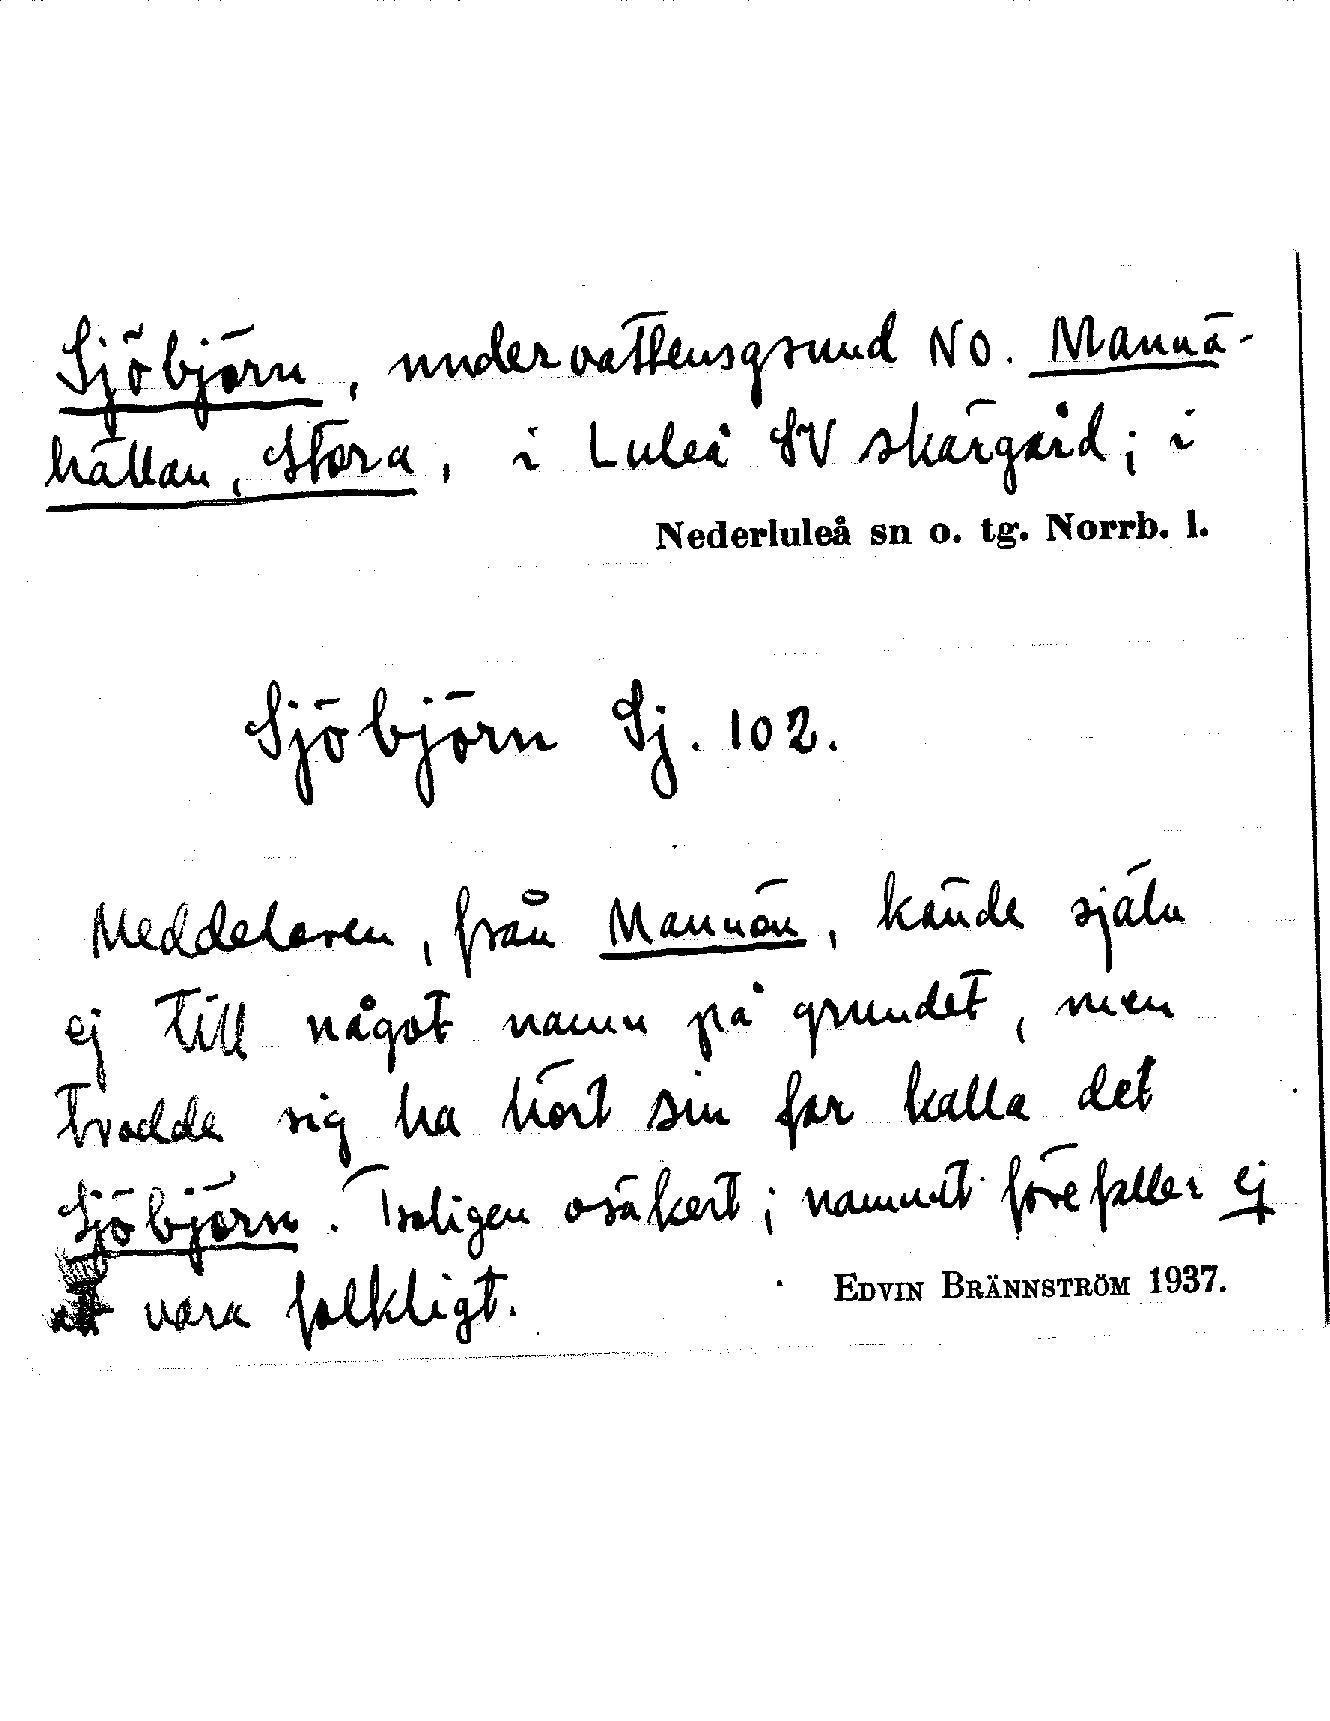 Sjöbjörn, undervattensgrund NO. Mannä-
hällan, Stora, i Luleå SV skärgård; i
Nederluleå sn o. tg. Norrb. l.
Sjöbjörn Sj. 102.
Meddelaren, från Mannön, kände själv
ej till något namn på grundet, men
trodde sig ha hört sin far kalla det
Sjöbjörn. Troligen osäkert; namnet förefaller ej
att vara folkligt.
EDVIN BRÄNNSTRÖM 1937.